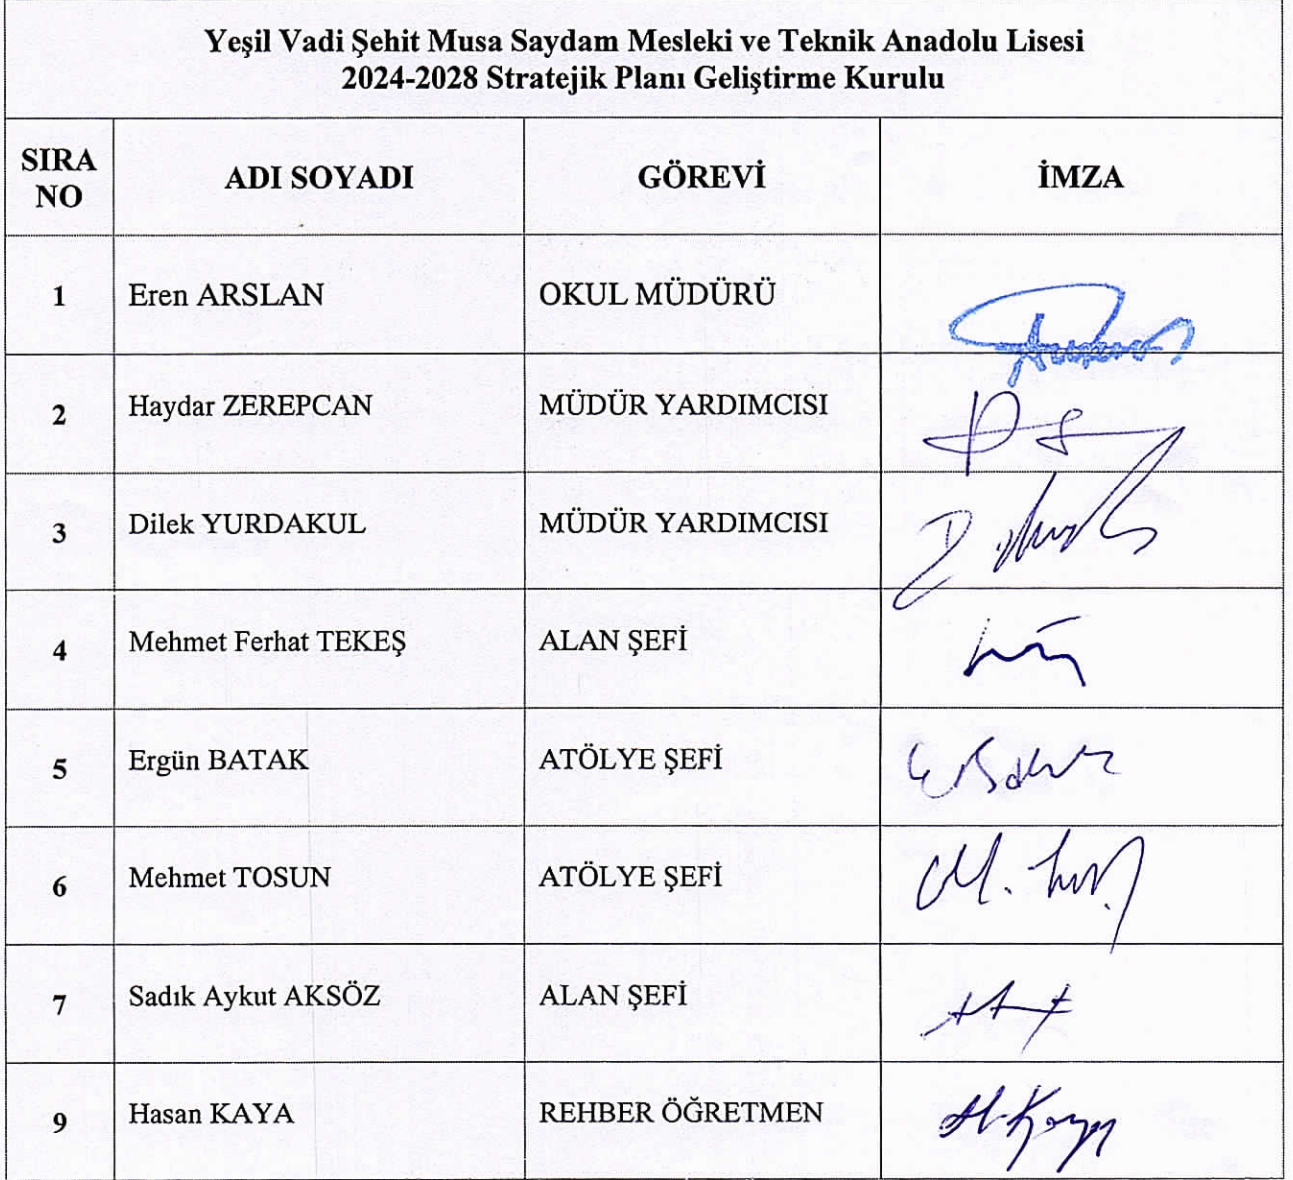 Yeşil Vadi Şehit Musa Saydam Mesleki ve Teknik Anadolu Lisesi
2024-2028 Stratejik Planı Geliştirme Kurulu
SIRA NO ADI SOYADI GÖREVİ İMZA
1 Eren ARSLAN OKUL MÜDÜRÜ
2 Haydar ZEREPCAN MÜDÜR YARDIMCISI
3 Dilek YURDAKUL MÜDÜR YARDIMCISI
4 Mehmet Ferhat TEKEŞ ALAN ŞEFİ
5 Ergün BATAK ATÖLYE ŞEFİ
6 Mehmet TOSUN ATÖLYE ŞEFİ
7 Sadık Aykut AKSÖZ ALAN ŞEFİ
9 Hasan KAYA REHBER ÖĞRETMEN